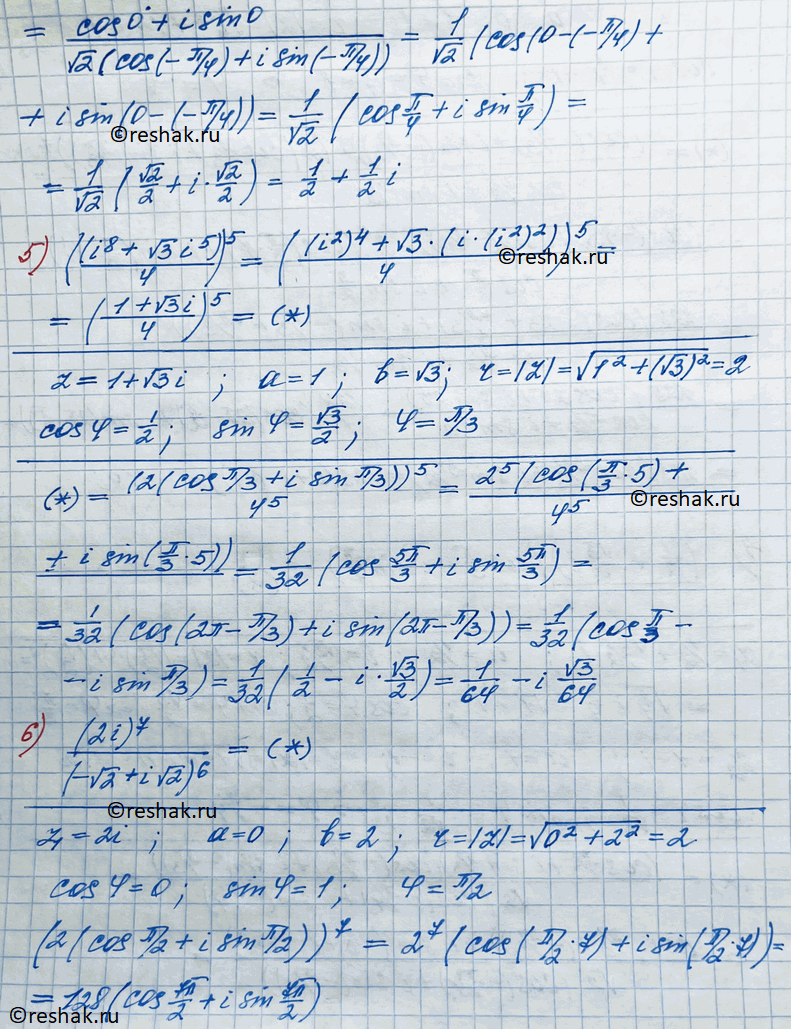 = (cos0 + i sin0)/(√2(cos(-π/4) + i sin(-π/4))) = 1/√2 (cos(0-(-π/4) +
+ i sin(0-(-π/4)) = 1/√2 (cos π/4 + i sin π/4) =
©reshak.ru
= 1/√2 (√2/2 + i·√2/2) = 1/2 + 1/2 i
5) ((i⁸ + √3 i⁵)/4)⁵ = (((i²)⁴ + √3·(i·(i²)²))/4)⁵ =
©reshak.ru
= ((1+√3i)/4)⁵ = (*)
z = 1+√3i ; a=1 ; b=√3; r=|z|=√(1²+(√3)²)=2
cosφ=1/2; sinφ=√3/2; φ=π/3
(*) = (2(cosπ/3 + i sinπ/3))⁵/4⁵ = 2⁵(cos(π/3·5) +/4⁵
©reshak.ru
+ i sin(π/3·5)) = 1/32 (cos 5π/3 + i sin 5π/3) =
= 1/32 (cos(2π-π/3) + i sin(2π-π/3)) = 1/32 (cos π/3 -
- i sin π/3) = 1/32 (1/2 - i·√3/2) = 1/64 - i √3/64
6) (2i)⁷/(-√2+i√2)⁶ = (*)
©reshak.ru
z₁ = 2i ; a=0 ; b=2 ; r=|z|=√(0²+2²)=2
cosφ=0; sinφ=1; φ=π/2
(2(cosπ/2 + i sinπ/2))⁷ = 2⁷(cos(π/2·7) + i sin(π/2·7)=
= 128(cos 7π/2 + i sin 7π/2)
©reshak.ru